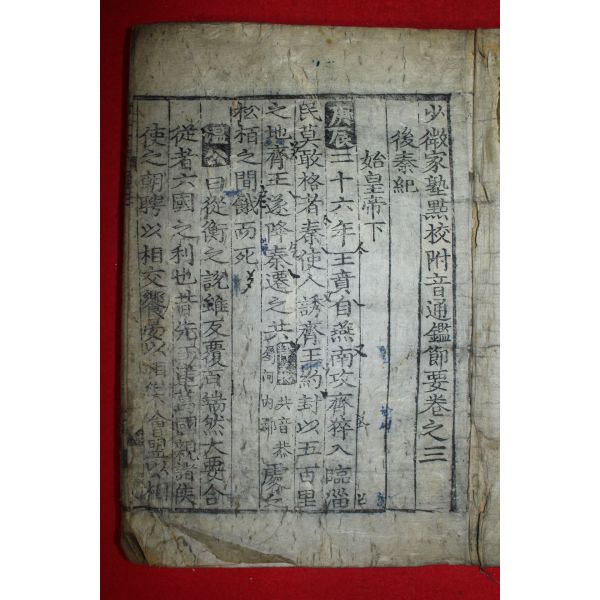 少微家塾點校附音通鑑節要卷之三
後秦紀
始皇帝下
庚辰 二十六年王賁自燕南攻齊猝入臨淄
民莫敢格者秦使人誘齊王約封以五百里
之地齊王遂降秦遷之共 共音恭 河內郡 處之
松栢之間餓而死
溫公曰從衡之說雖反覆百端然大要合
從者六國之利也昔先王建萬國親諸侯
使之朝聘以相交饗宴以相樂會盟以相